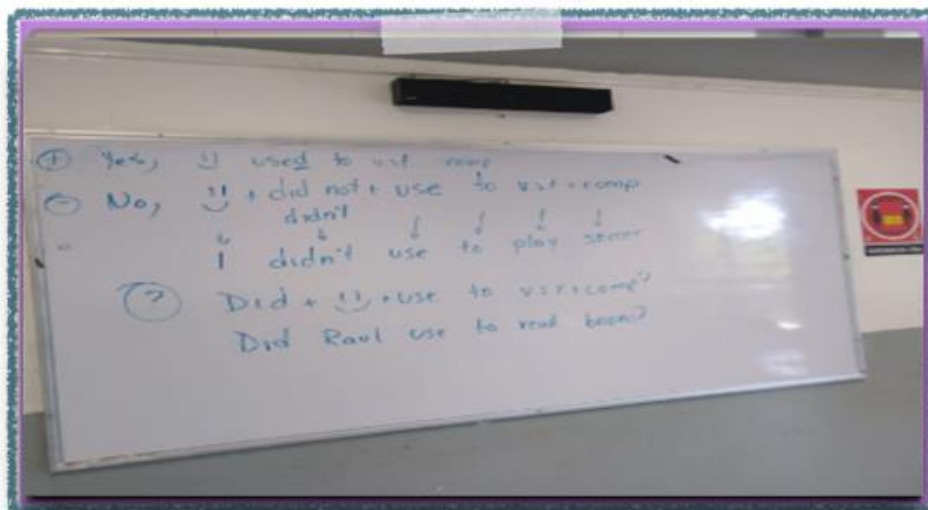 + Yes, used to v.s.f comp
- No, + did not + use to v.s.f + comp
didn't
I didn't use to play soccer
? Did + + use to v.s.f + comp?
Did Raul use to read books?